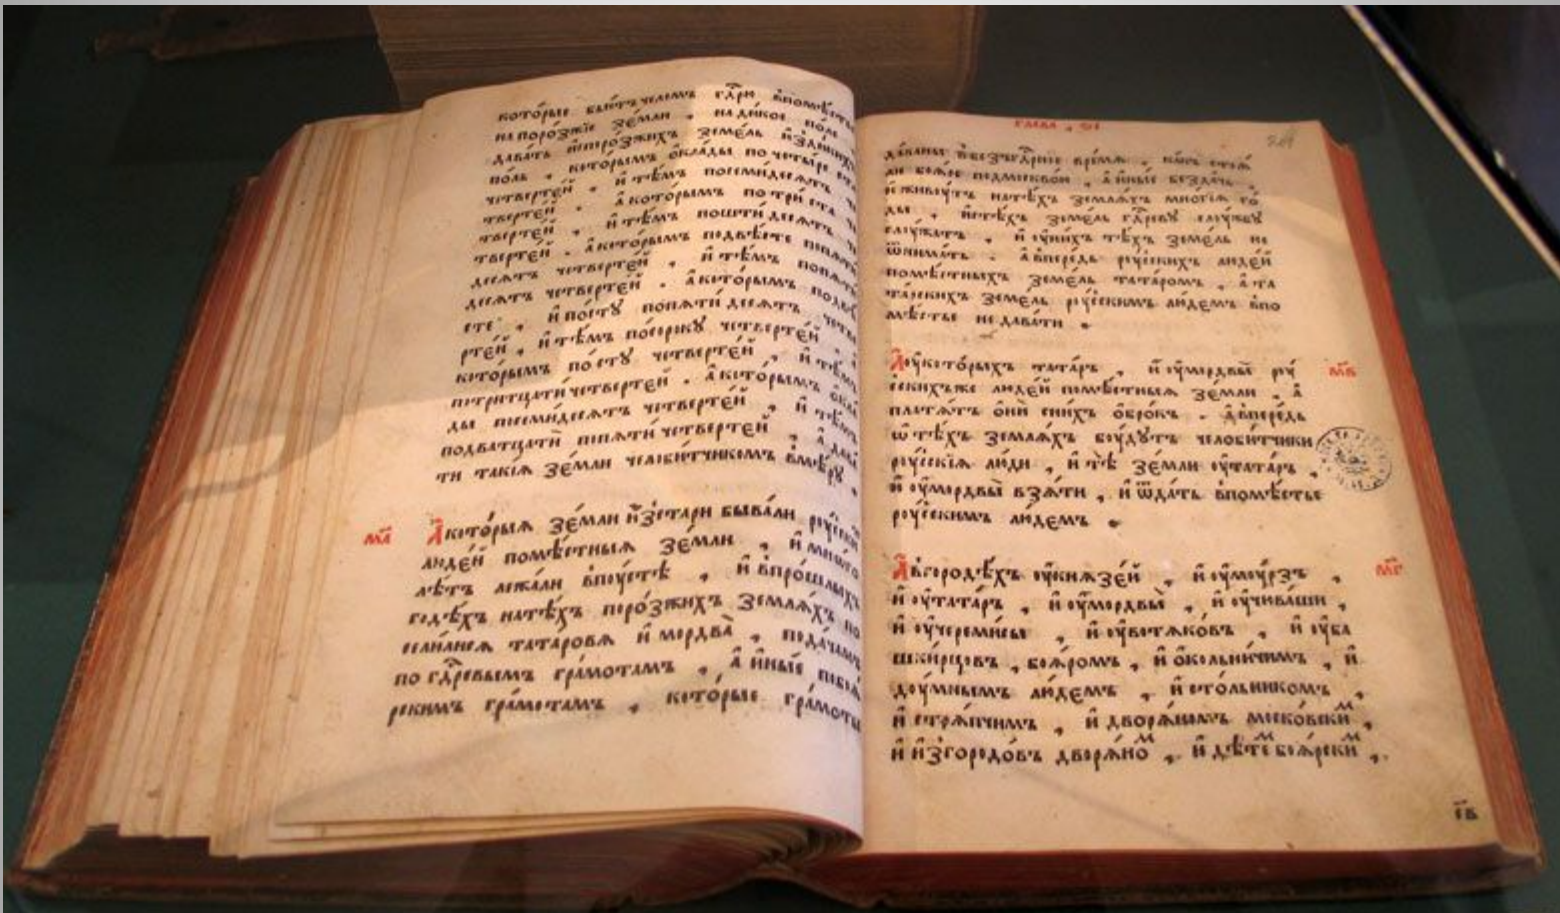 кото́рые бью́тъ чело́мъ гдⷭ҇рю в̾помѣ́стье
на поро́зжїе зе́мли , на ди́кое по́ле
дава́ть и҆с̾поро́зжихъ земе́ль и҆ з̾ди́кихъ
по́ль , кото́рымъ ѻ҆кла́ды по четы́ре ста
четверте́й , и҆ тѣ́мъ по се́мидеся́тъ че
тверте́й . а҆ кото́рымъ по три́ ста че
тверте́й , и҆ тѣ́мъ по шти́десятъ че
тверте́й . а҆ кото́рымъ по две́сте по пяти́
деся́тъ четверте́й , и҆ тѣ́мъ по пяти́
деся́тъ четверте́й . а҆ кото́рымъ по две́
сте , и҆ по сту́ по пяти́ деся́тъ четве
рте́й , и҆ тѣ́мъ по со́року четверте́й . а҆
кото́рымъ по сту́ четверте́й , и҆ тѣ́мъ
по три́тцати четверте́й . а҆ кото́рымъ ѻ҆кла́
ды по се́мидеся́тъ четверте́й , и҆ тѣ́мъ
по два́тцати по пяти́ четверте́й , а҆ дава́
ти такі́я зе́мли челоби́тчикомъ в̾мѣ́ру .
м҃а А҆ кото́рыя зе́мли и҆з̾стари быва́ли рꙋ́ски
люде́й помѣ́стныя зе́мли , и҆ мно́го
лѣ́тъ лежа́ли в̾пꙋ́стѣ , и҆ в̾про́шлыхъ
годѣ́хъ на тѣ́хъ поро́зжихъ земля́хъ по
сели́лися тата́ровя и҆ мордва̀ , по да́чамъ
по гдⷭ҇ревымъ гра́мотамъ , а҆ и҆ны́е по боя́
рскимъ гра́мотамъ , кото́рые гра́моты
глава , ѕ҃і
да́ваны в̾безъгдⷭ҇рное вре́мя , ка́къ стоя́
ли боя́ре под̾ москво́ю , а҆ и҆ны́е без̾да́чь ,
и҆ живꙋ́тъ на тѣ́хъ земля́хъ мно́гїя го́
ды , и҆ с̾тѣ́хъ земе́ль гдⷭ҇реву слꙋ́жбу
слꙋ́жатъ , и҆ ᲂу҆ ни́хъ тѣ́хъ земе́ль не
ѿнима́ть . а҆ в̾пере́дь рꙋ́скихъ люде́й
помѣ́стныхъ земе́ль тата́ромъ , а҆ та
та́рскихъ земе́ль рꙋ́скимъ лю́демъ в̾по
мѣ́стье не дава́ти .
А҆ ᲂу҆ кото́рыхъ тата́ръ , и҆ ᲂу҆ мордвы̀ рꙋ́ м҃в
скихъ же люде́й помѣ́стныя зе́мли , а҆
пла́тятъ ѻ҆нѝ с ни́хъ ѻ҆бро́къ . а҆ в̾пере́дь
ѡ҆ тѣ́хъ земля́хъ бꙋ́дꙋтъ челоби́тчики
рꙋ́скїя лю́ди , и҆ тѣ̀ зе́мли ᲂу҆ тата́ръ ,
и҆ ᲂу҆ мордвы̀ взя́ти , и҆ ѿда́ть в̾помѣ́стье
рꙋ́скимъ лю́демъ .
А҆ в̾городѣ́хъ ᲂу҆ князе́й , и҆ ᲂу҆ мꙋ́рзъ , м҃г
и҆ ᲂу҆ тата́ръ , и҆ ᲂу҆ мордвы̀ , и҆ ᲂу҆ чюва́ши ,
и҆ ᲂу҆ череми́сы , и҆ ᲂу҆ вотяко́въ , и҆ ᲂу҆ ба
шки́рцовъ , боя́ромъ , и҆ ѻ҆ко́льничимъ , и҆
дꙋ́мнымъ лю́демъ , и҆ сто́льникомъ ,
и҆ стря́пчимъ , и҆ дворя́номъ моско́вскиⷨ ,
и҆ и҆з̾городо́въ дворя́ноⷨ , и҆ дѣ́теⷨ боя́рскиⷨ ,
с҃в